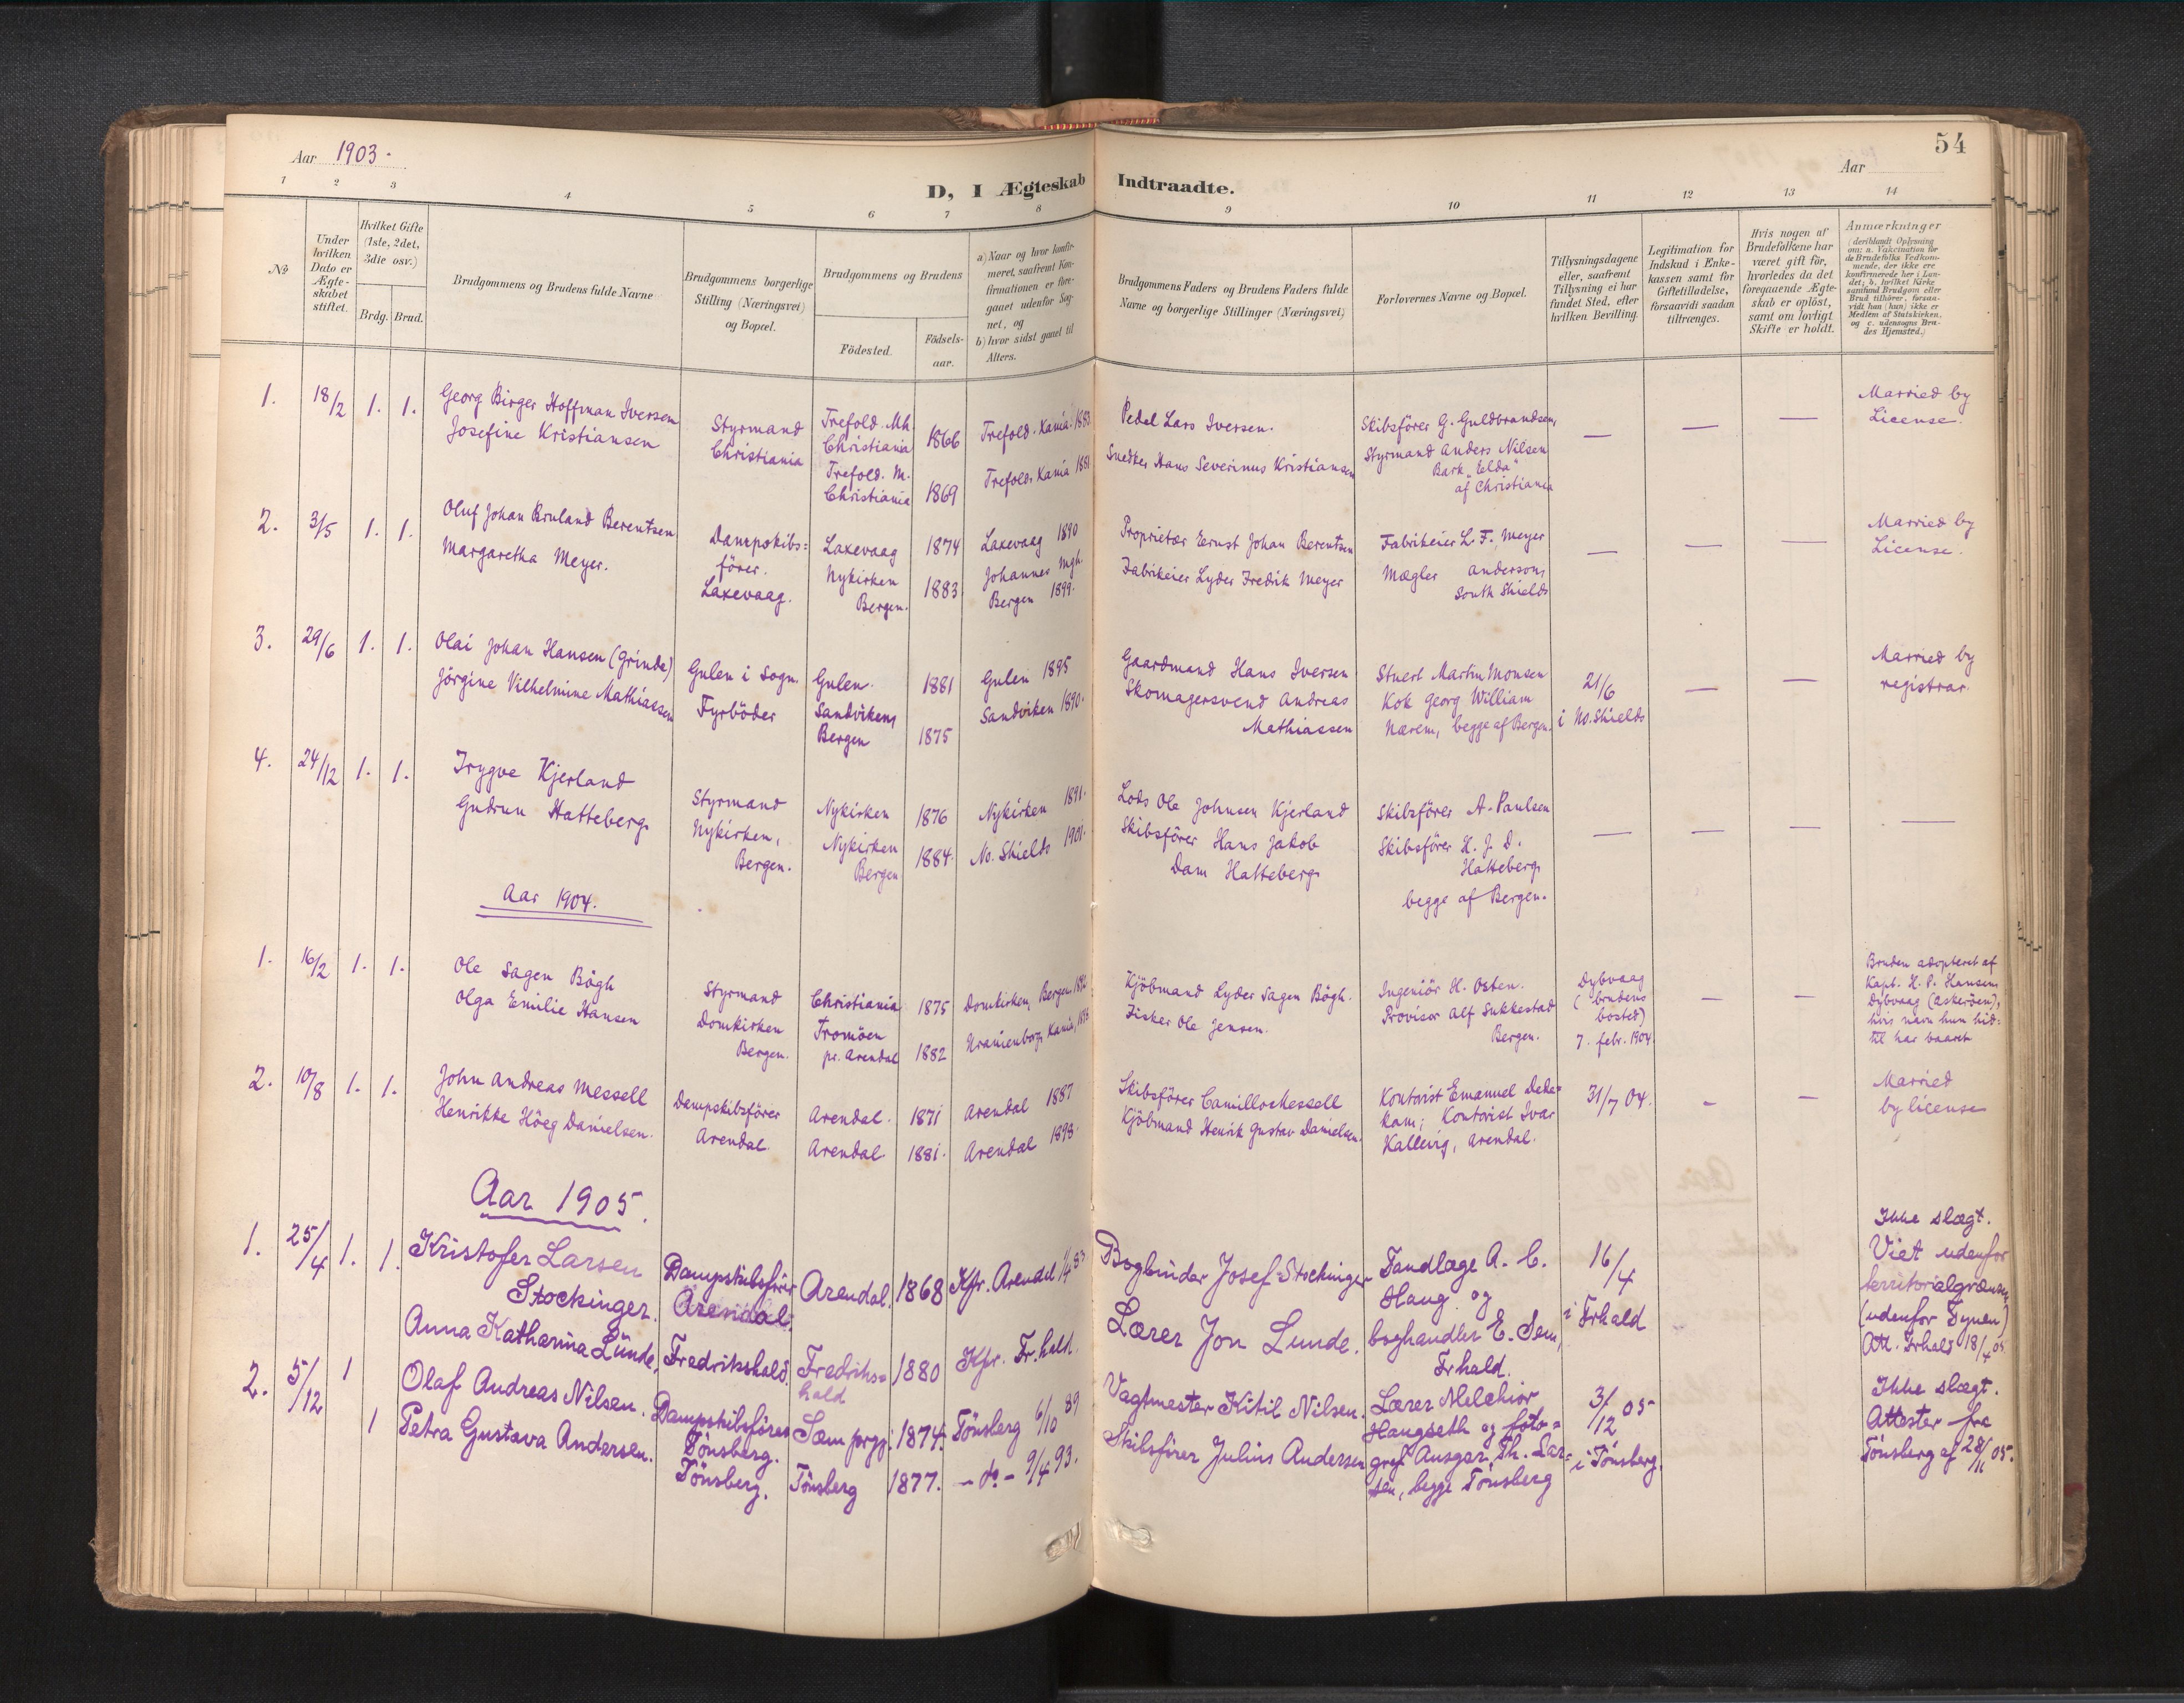 Aar 1903.
D, I Ægteskab Indtraadte.
Aar
54
1 2 3 4 5 6 7 8 9 10 11 12 13 14
No
Under
hvilken
Dato er
Ægte-
skabet
stiftet.
Hvilket Gifte
(1ste, 2det,
3die osv.)
Brdg. Brud.
Brudgommens og Brudens fulde Navne
Brudgommens borgerlige
Stilling (Næringsvei)
og Bopæl.
Brudgommens og Brudens
Födested.
Födsels-
aar.
a) Naar og hvor konfir-
meret, saafremt Kon-
firmationen er fore-
gaaet udenfor Sog-
net, og
b) hvor sidst gaaet til
Alters.
Brudgommens Faders og Brudens Faders fulde
Navne og borgerlige Stillinger (Næringsvei)
Forlovernes Navne og Bopæl.
Tillysningsdagene
eller, saafremt
Tillysning ei har
fundet Sted, efter
hvilken Bevilling.
Legitimation for
Indskud i Enke-
kassen samt for
Giftetilladelse,
forsaavidt saadan
tiltrænges.
Hvis nogen af
Brudefolkene har
været gift för,
hvorledes da det
foregaaende Ægte-
skab er oplöst,
samt om lovligt
Skifte er holdt.
Anmærkninger
(deriblandt Oplysning
om: a. Vakcination for
de Brudefolks Vedkom-
mende, der ikke ere
konfirmerede her i Lan-
det; b. hvilket Kirke-
samfund Brudgom eller
Brud tilhörer, forsaa-
vidt han (hun) ikke er
Medlem af Statskirken,
og c. udensogns Bru-
des Hjemsted.)
1. 18/2 1. 1.
Georg Birger Hoffman Iversen
Josefine Kristiansen
Styrmand
Christiania
Trefold. Mh.
Christiania
Trefold. M.
Christiania
1866
1869
Trefold. Xania. 1883
Trefold. Xania 1881
Pedel Lars Iversen.
Snedker Hans Severinus Kristiansen
Skibsförer G. Guldbrandsen,
Styrmand Anders Nilsen
Bark "Elda"
af Christiania
— — —
Married by
License.
2. 3/5 1. 1.
Oluf Johan Rinland Berentsen
Margaretha Meyer.
Dampskibs=
förer.
Laxevaag.
Laxevaag
Nykirken
Bergen.
1874
1883
Laxevaag 1890
Johannes Mgh.
Bergen 1899.
Proprietær Ernst Johan Berentsen
Fabrikeier Lyder Fredrik Meyer
Fabrikeier L. F. Meyer
Mægler Anderson,
South Shields
— — —
Married by
License.
3. 29/6 1. 1.
Olai Johan Hansen (Grinde)
Jörgine Vilhelmine Mathiassen
Gulen i Sogn.
Fyrböder
Gulen.
Sandviken,
Bergen
1881
1875
Gulen 1895
Sandviken 1890.
Gaardmand Hans Iversen
Skomagersvend Andreas
Mathiassen
Stuert Martin Monsen
Kok Georg William
Nærem, begge af Bergen.
21/6
i No. Shields
— —
Married by
registrar.
4. 24/12 1. 1.
Trygve Kjerland
Gudrun Hatteberg
Styrmand
Nykirken,
Bergen.
Nykirken
Nykirken
Bergen
1876
1884.
Nykirken 1891.
No. Shields 1901.
Lods Ole Johnsen Kjerland
Skibsförer Hans Jakob
Dam Hatteberg
Skibsförer A. Paulsen
Skibsförer H. J. D.
Hatteberg
begge af Bergen.
— — — —
Aar 1904.
1. 16/2 1. 1.
Ole Sagen Bögh
Olga Emilie Hansen
Styrmand
Domkirken
Bergen.
Christiania
Tromöen
pr. Arendal
1875
1882
Domkirken, Bergen
Uranienborg, Xania,
Kjöbmand Lyder Sagen Bögh.
Fisker Ole Jensen.
Ingeniör H. Osten.
Provisor Alf Sukkestad
Bergen.
Dybvaag
(brudens
bosted)
7. febr. 1904.
— —
Bruden adopteret af
Kapt. H. P. Hansen,
Dybvaag (Askeröen),
hvis navn hun hid=
til har baaret
2. 10/8 1. 1.
John Andreas Messell
Henrikke Höeg Danielsen.
Dampskibsförer
Arendal
Arendal.
Arendal
1871
1881.
Arendal 1887
Arendal 1898.
Skibsförer Camillo Messell
Kjöbmand Henrik Gustav Danielsen.
Kontorist Emanuel Dede=
kam; Kontorist Ivar
Kallevig, Arendal.
31/7 04.
— —
Married
by license
Aar 1905.
1. 25/4 1. 1.
Kristofer Larsen
Stockinger.
Anna Katharina Lunde.
Dampskibsförer
Arendal.
Fredrikshald.
Arendal.
Fredriks=
hald
1868
1880
Kfr. Arendal 1/4 83
Kfr. Fr.hald.
Bogbinder Josef Stockinger
Lærer Jon Lunde.
Tandlæge A. C.
Haug. og
boghandler E. Sem,
Frhald.
16/4
i Frhald
Ikke slægt.
Viet udenfor
territorialgrænsen
(udenfor Tynen)
Att. Frhald 18/4 05
2. 5/12 1
1
Olaf Andreas Nilsen.
Petra Gustava Andersen.
Dampskibsförer
Tönsberg.
Tönsberg.
Sæm prgj.
Tönsberg
1874.
1877.
Tönsberg 6/10 89
— do — 9/4 93.
Vagtmester Kitil Nilsen.
Skibsförer Julius Andersen
Lærer Melchior
Haugseth og foto=
graf Ansgar Th. Lar=
sen, begge Tönsberg
3/12 05
i Tönsberg.
Ikke slægt.
Attester fra
Tönsberg af 28/11 05.